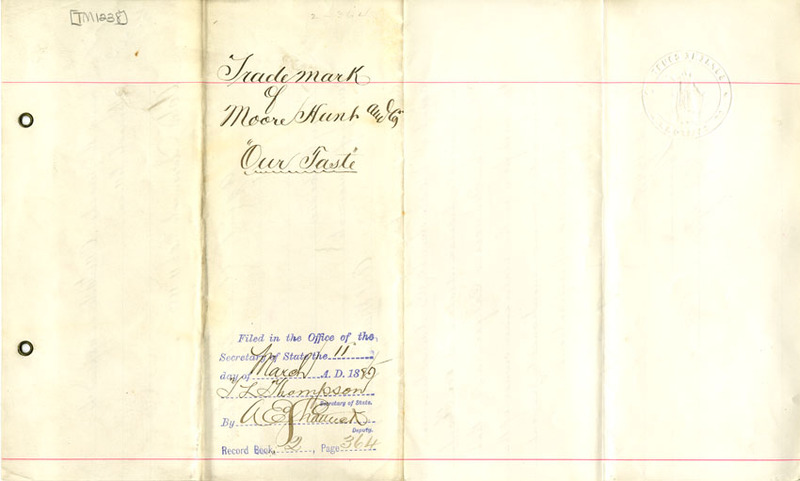 [TM1231]
2-364
Trade mark
of
Moore Hunt and Co
"Our Taste"
Filed in the Office of the
Secretary of State the 11
day of March A. D. 1885
T L Thompson
Secretary of State.
By A E Shattuck
Deputy.
Record Book, 2, Page 364